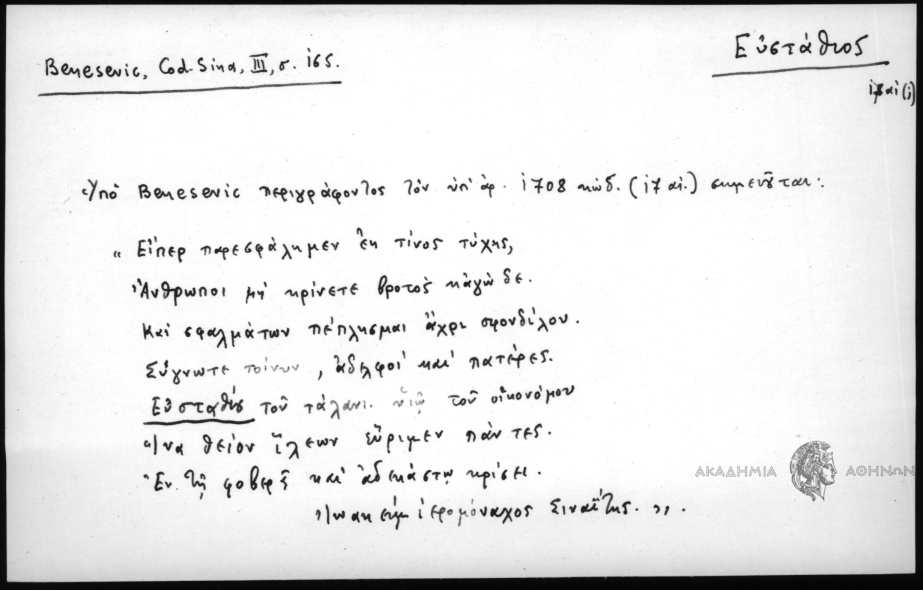 Benesevic, Cod. Sina, III, σ. 165.
Εὐστάθιος
17 αἰ (;)
Ὑπὸ Benesevic περιγράφοντος τὸν ὑπ' ἀρ. 1708 κώδ. (17 αἰ.) σημειοῦται:
„ Εἴπερ παρεσφάλημεν ἐκ τίνος τύχης,
Ἄνθρωποι μὴ κρίνετε βροτὸς κἀγὼ δε.
Καὶ σφαλμάτων πέπλησμαι ἄχρι σφονδίλου.
Σύγνωτε τοίνυν, ἀδελφοὶ καὶ πατέρες.
Εὐσταθίῳ τοῦ τάλανι. υἱῷ τοῦ οἰκονόμου
Ἵνα θεῖον ἵλεων εὕριμεν πάντες.
Ἐν τῇ φοβερᾷ καὶ ἀδεκάστῳ κρίσει.
ἱερομόναχος Σιναΐτης. ,,.
ΑΚΑΔΗΜΙΑ ΑΘΗΝΩΝ